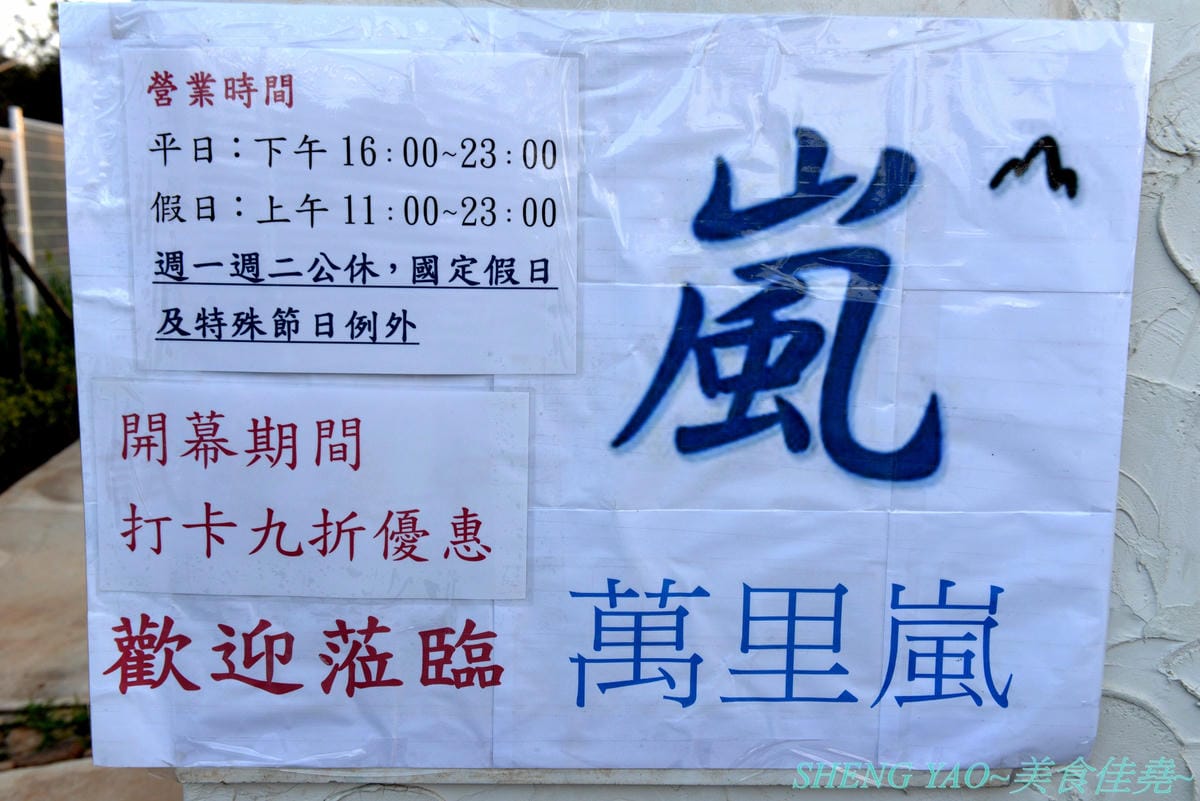 營業時間
平日：下午 16：00~23：00
假日：上午 11：00~23：00
週一週二公休，國定假日
及特殊節日例外
開幕期間
打卡九折優惠
歡迎蒞臨
嵐
萬里嵐
SHENG YAO~美食佳堯~